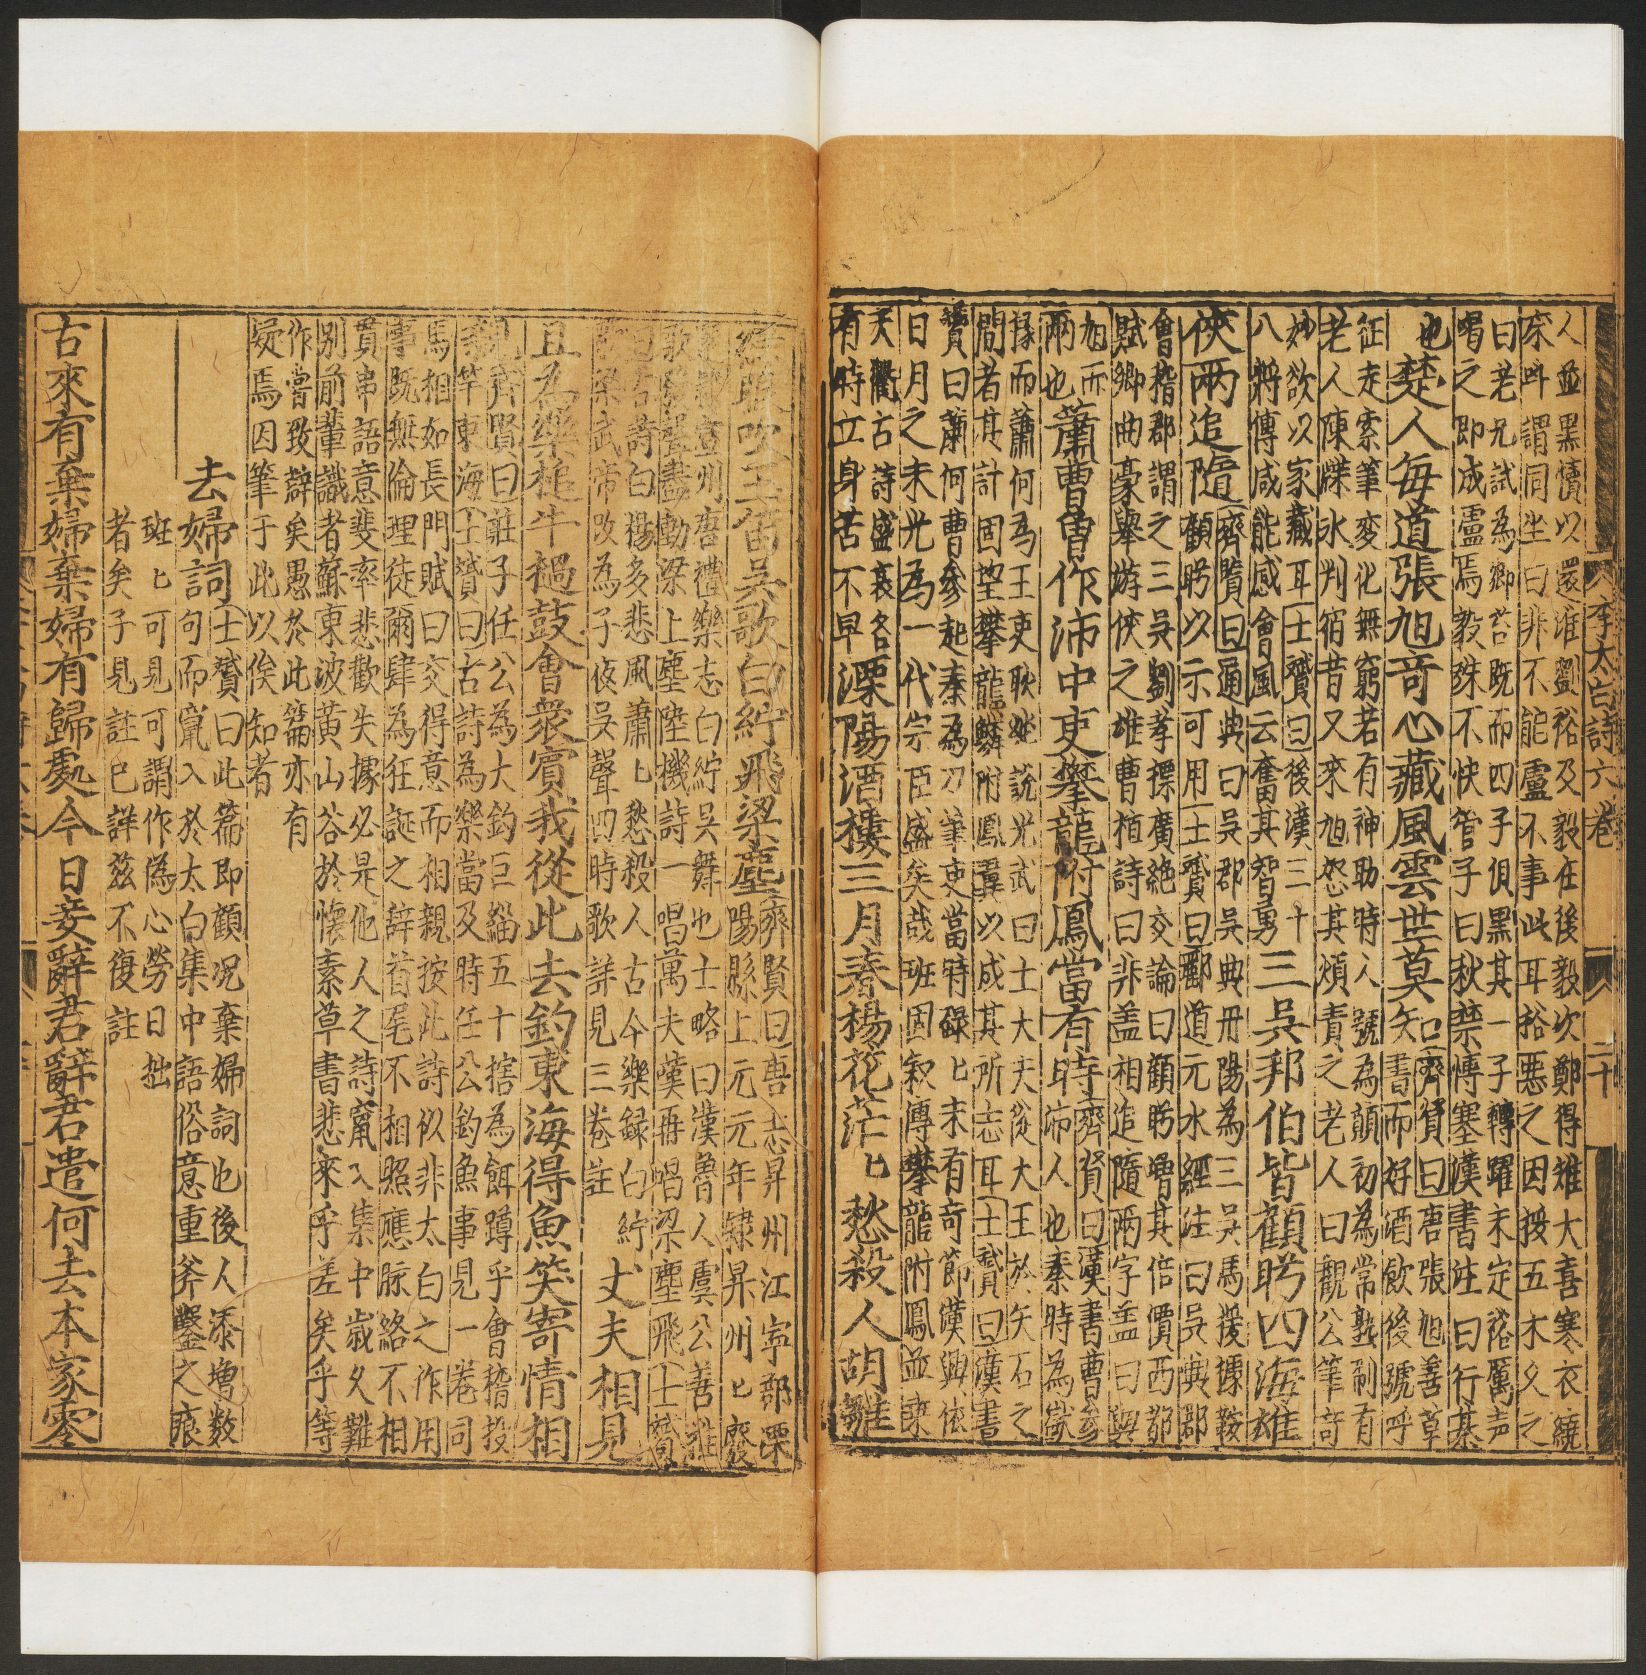 李太白詩六卷 二十
人並黑犢以還唯劉裕及毅在後毅次擲得雉大喜寒衣繞
床叫謂同坐曰非不能盧不事此耳裕惡之因挼五木久之
曰老兄試為卿荅既而四子俱黑其一子轉躍未定裕厲声
喝之即成盧焉毅殊不快管子曰秋禁愽塞漢書注曰行棊
也 楚人毎道張旭竒心藏風雲世莫知 齊賢曰唐張旭善草
矢書而好酒飲後號呼
征走索筆変化無窮若有神助時人號為顛初為常熟制有
老人陳牒水判宿昔又來旭怒其煩責之老人曰觀公筆竒
妙欲以家藏耳士贇曰後漢三十
八將傳咸能感會風云奮其智勇 三吳邦伯皆顧眄四海雄
俠兩追隨 齊賢曰通典曰吳郡吳典丹陽為三吳馬援據鞍
顧眄以示可用士贇曰酈道元水經注曰吳興郡
會稽郡謂之三吳劉孝摽廣絶交論曰顧眄增其倍價西都
賦鄉曲豪舉游俠之雄曹植詩曰非盖相追隨兩字盖曰與
旭而
兩也 蕭曹曾作沛中吏攀龍附鳳當有時 齊賢曰漢書曹參
沛人也秦時為獄
掾而蕭何為王吏耿純説光武曰士大夫從大王於矢石之
間者其計固望攀龍鱗附鳳翼以成其所志耳士贇曰漢書
賛曰蕭何曹參起秦為刀筆吏當時碌匕未有竒節漢興依
日月之末光為一代宗臣盛矣哉班固叙傳攀龍附鳳並乘
天衢古詩盛衰各
有時立身苦不早 溧陽酒樓三月春楊花茫匕愁殺人胡雛
綠眼吹玉笛吳歌白紵飛梁塵 齊賢曰唐志昇州江寧郡溧
陽縣上元元年隷昇州匕廢
還隷宣州唐禮樂志白紵吳舞也士略曰漢魯人虞公善雅
歌發聲盡動梁上塵陸機詩一唱萬夫嘆再唱梁塵飛士贇
曰古詩白楊多悲風蕭匕愁殺人古今樂録白紵
歌梁武帝攺為子夜吳聲四時歌詳見三卷註 丈夫相見
且為樂槌牛撾鼓會衆賓我從此去釣東海得魚笑寄情相
親 齊賢曰莊子任公為大釣巨緇五十犗為餌蹲乎會稽投
竿東海士贇曰古詩為樂當及時任公釣魚事見一卷司
馬相如長門賦曰交得意而相親按此詩似非太白之作用
事既無倫理徒爾肆為狂誕之辭首尾不相照應脉絡不相
貫串語意斐率悲歡失據必是他人之詩竄入集中歲久難
别前輩識者蘇東波黄山谷於懷素草書悲來乎差矣乎等
作嘗致辭矣愚於此篇亦有
疑焉因筆于此以俟知者
去婦詞 士贇曰此篇即顧况棄婦詞也後人添増数
句而竄入於太白集中語俗意重斧鑿之痕
斑匕可見可謂作僞心勞日拙
者矣子見註巳詳兹不復註
古來有棄婦棄婦有歸處今日妾辭君辭君遣何去本家零